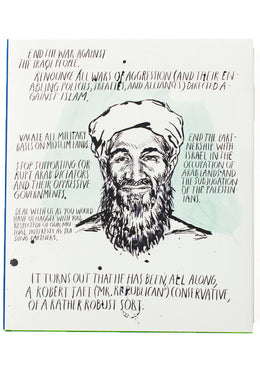 END THE WAR AGAINST
THE IRAQI PEOPLE.
RENOUNCE ALL WARS OF AGGRESSION (AND THEIR EN-
ABLING POLICIES, TREATIES, AND ALLIANCES) DIRECTED A-
GAINST ISLAM.
VACATE ALL MILITARY
BASES ON MUSLIM LANDS.
STOP SUPPORTING COR-
RUPT ARAB DICTATORS
AND THEIR OPPRESSIVE
GOVERNMENTS.
DEAL WITH US AS YOU WOULD
HAVE US
RESPECTFUL OF OUR MU-
TUAL INTERESTS AS TRA-
DING PARTNERS.
END THE PART-
NERSHIP WITH
ISRAEL IN THE
OCCUPATION OF
ARAB LANDS AND
THE SUBJUGATION
OF THE PALESTIN-
IANS.
IT TURNS OUT THAT HE HAS BEEN, ALL ALONG,
A ROBERT TAFT (MR. REPUBLICAN) CONSERVATIVE,
OF A RATHER ROBUST SORT.